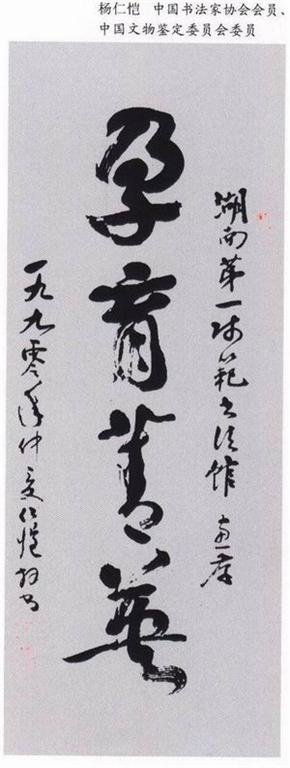 杨仁恺 中国书法家协会会员、
中国文物鉴定委员会委员
湖南第一师范书法馆
孕育菁英
一九九零年仲夏仁恺书